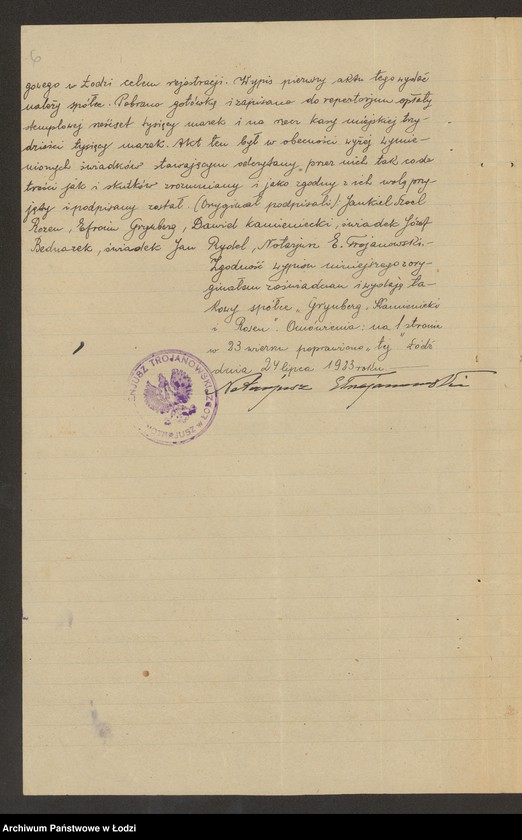 6
gowego w Łodzi celem rejestracji. Wypis pierwszy aktu tego wydać
należy spółce. Pobrano gotówką i zapisano do repertorjum opłaty
stemplowej sześćset tysięcy marek i na rzecz kasy miejskiej trzy-
dzieści tysięcy marek. Akt ten był w obecności wyżej wymie-
nionych świadków stawającym odczytany, przez nich tak co do
treści jak i skutków zrozumiany i jako zgodny z ich wolą przy-
jęty i podpisany został. (Oryginał podpisali:) Jankiel Icek
Rozen, Efroim Grynberg, Dawid Kamieniecki, świadek Józef
Bednarek, świadek Jan Rydel, Notarjusz E. Trojanowski.-
Zgodność wypisu niniejszego z ory-
ginałem zaświadczam i wydaję ta-
kowy spółce "Grynberg, Kamieniecki
i Rosen". Omówienia: na 1 stronie
w 23 wierszu poprawiono "ty" Łódź
dnia 24 lipca 1923 roku
Notarjusz ETrojanowski
TROJANOWSKI
NOTARJUSZ w ŁODZI
Archiwum Państwowe w Łodzi